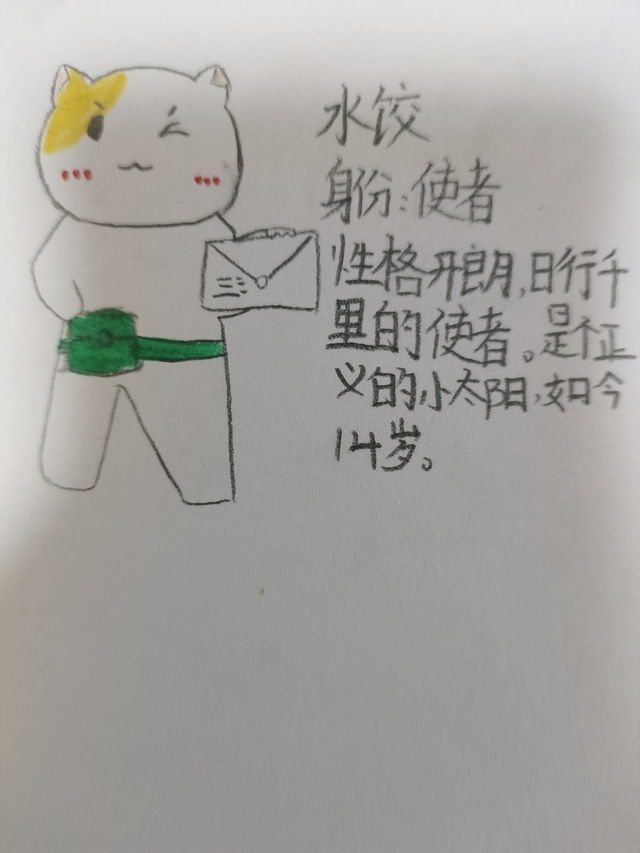 水饺
身份:使者
性格开朗,日行千
里的使者。是个正
义的小太阳,如今
14岁。